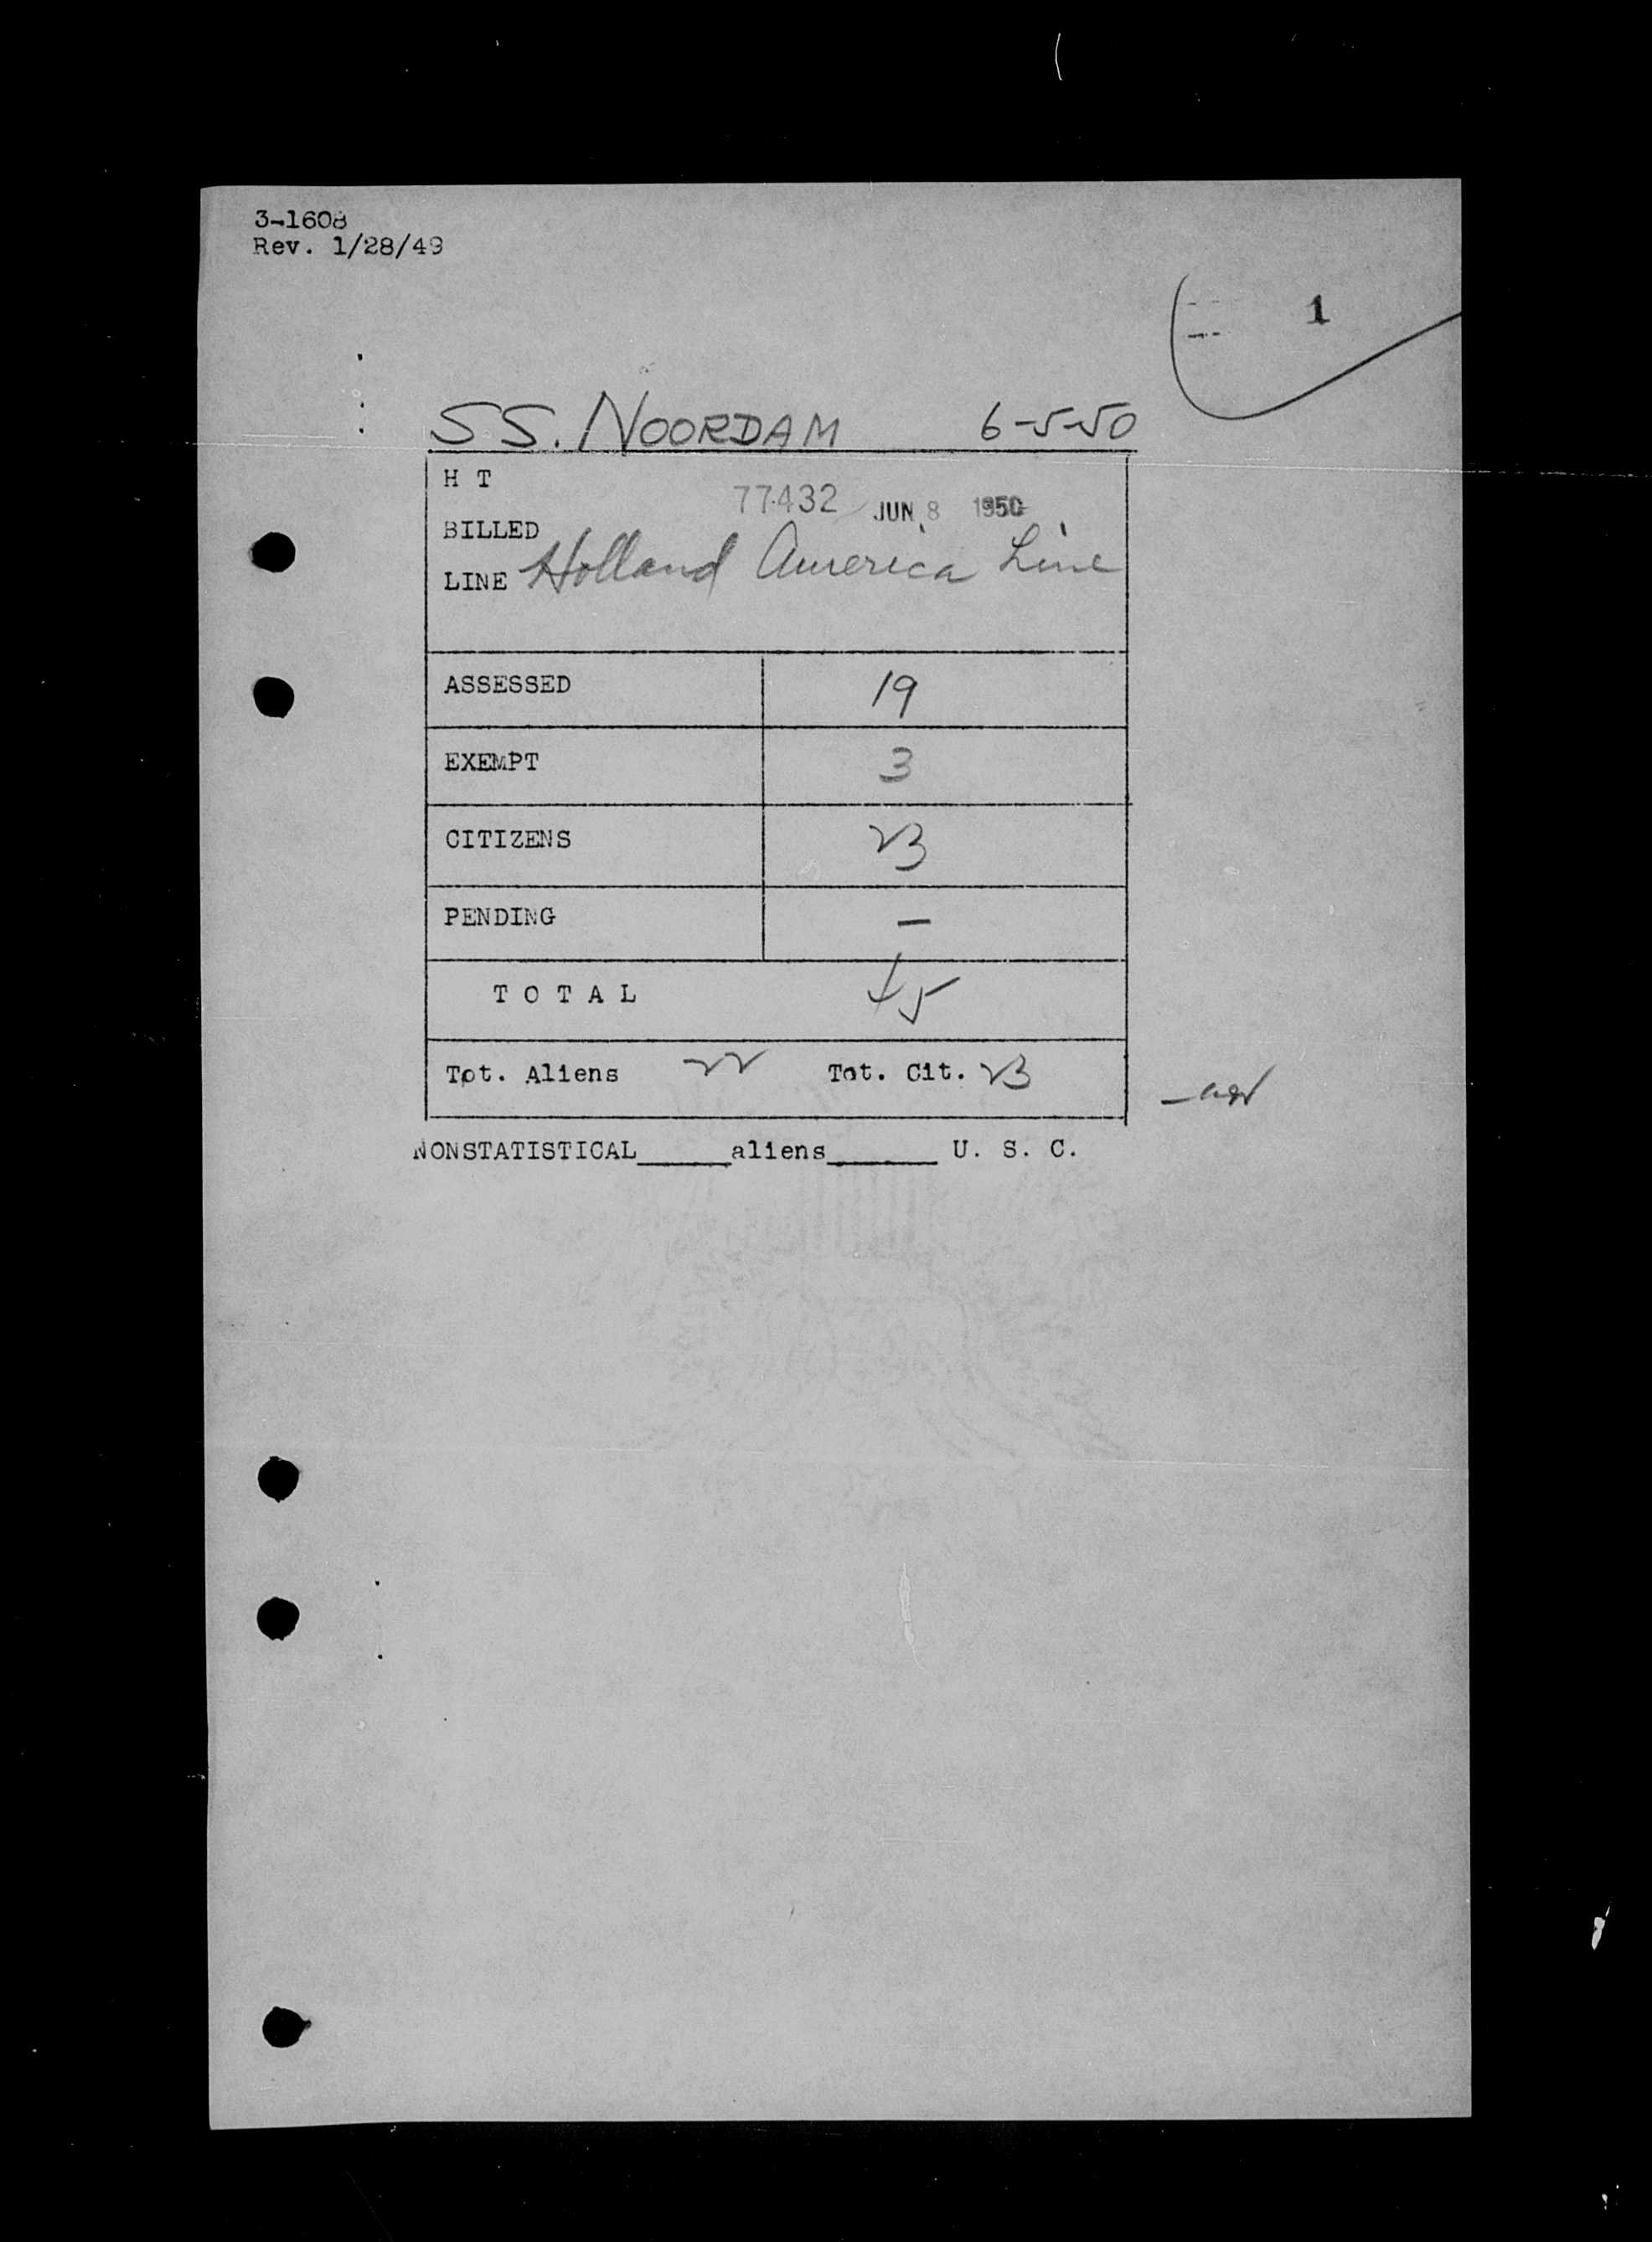 3-1608
Rev. 1/28/49
1
SS. NOORDAM 6-5-50
H T
77432 JUN 8 1950
BILLED
LINE Holland America Line
ASSESSED 19
EXEMPT 3
CITIZENS 23
PENDING —
T O T A L 45
Tot. Aliens 22 Tot. Cit. 23
NONSTATISTICAL_____aliens______ U. S. C.